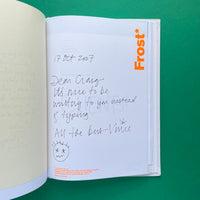 17 Oct 2007
Dear Craig
its nice to be
writing to you instead
of typing
All the best Vince
Frost*